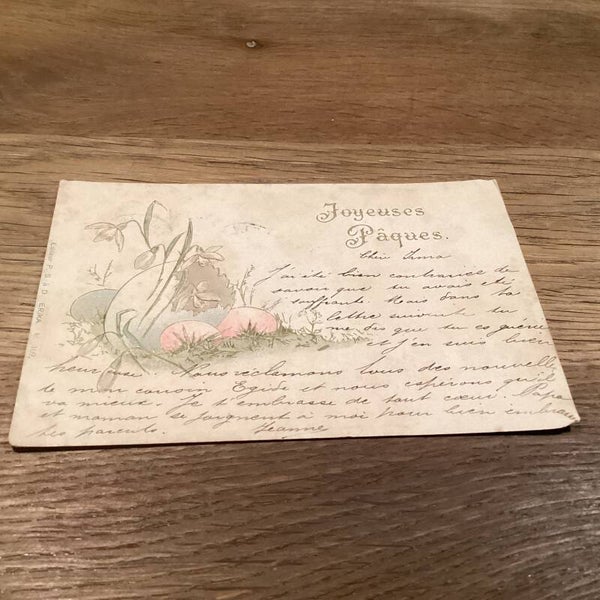 Joyeuses
Pâques.
J'ai été bien contrariée de
savoir que tu avais été
souffrante Mais dans ta
lettre suivante tu
me dis que tu es guérie
et j'en suis bien
heureuse Nous réclamons tous des nouvelles
de mon cousin Egide et nous espérons qu'il
va mieux. Je t'embrasse de tout cœur. Papa
et maman se joignent à moi pour bien embrasser
tes parents. Jeanne
ERIKA